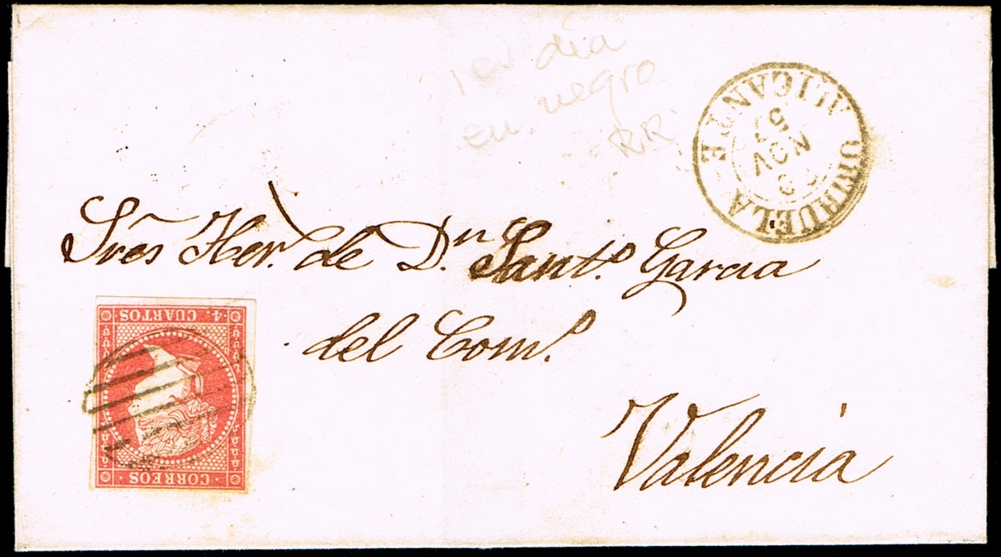 1er dia
en negro
RR
ORIHUELA
ALICANTE
NOV
57
Sres Her. de Dn. Sant.o Garcia
del Com.o
Valencia
4 CUARTOS
CORREOS